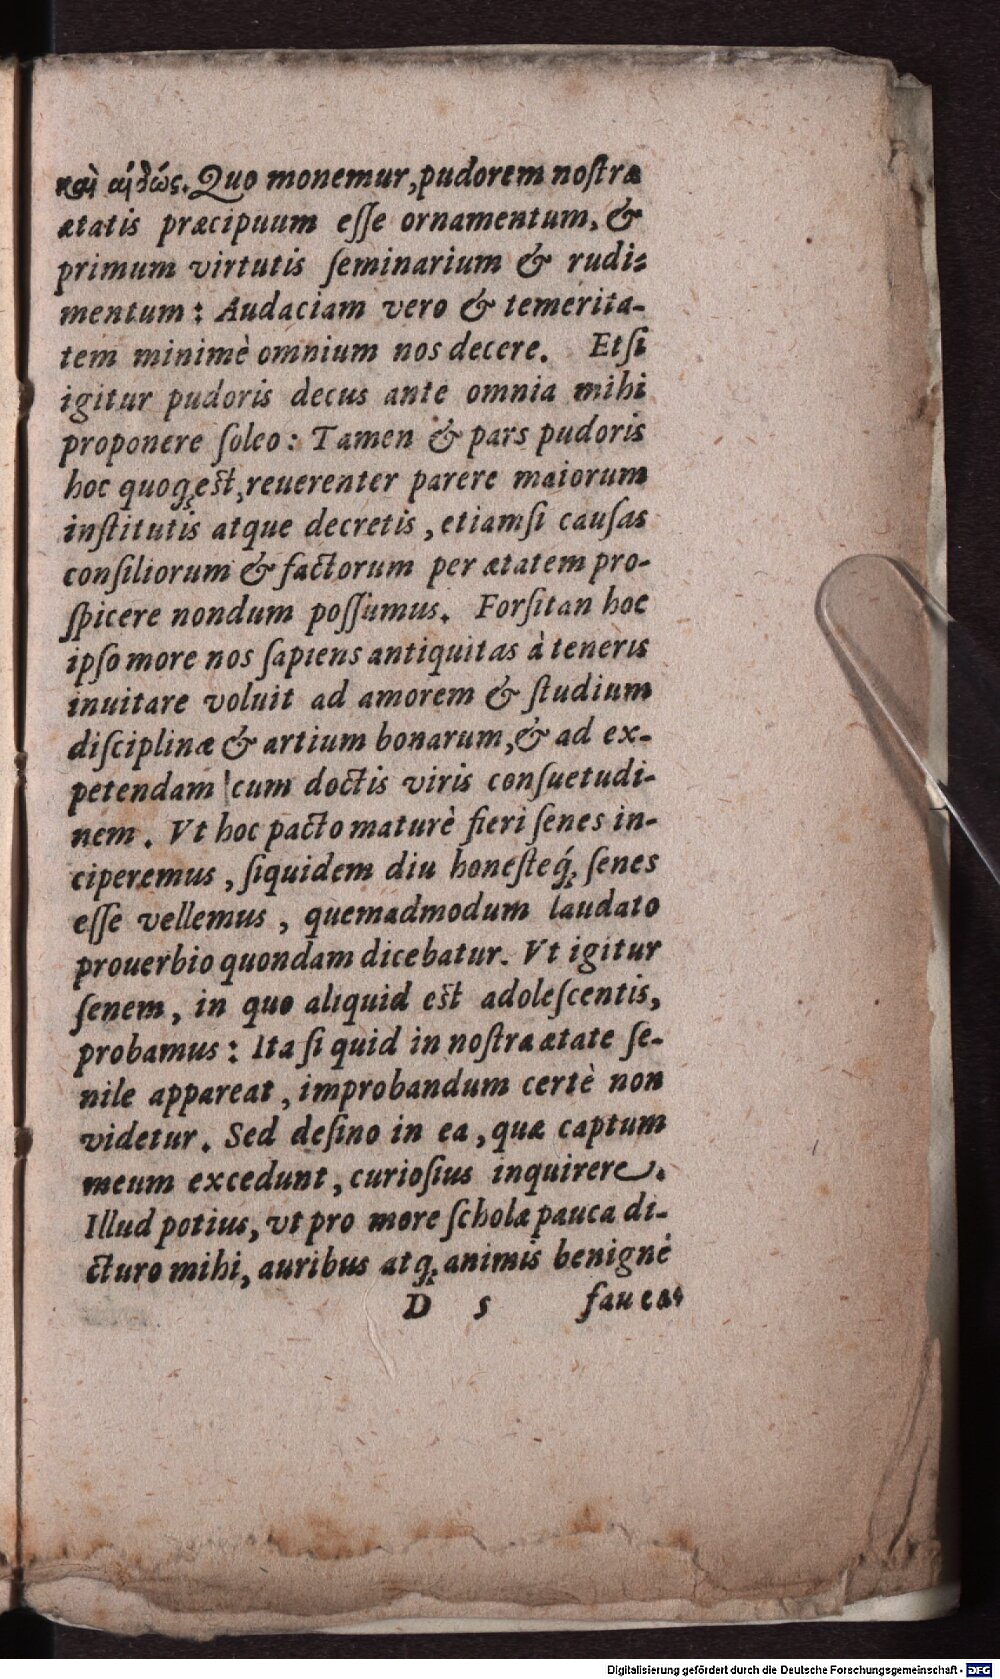 καὶ αἰδώς. Quo monemur, pudorem noſtræ
ætatis præcipuum eſſe ornamentum, &
primum virtutis ſeminarium & rudi-
mentum: Audaciam vero & temerita-
tem minimè omnium nos decere. Etſi
igitur pudoris decus ante omnia mihi
proponere ſoleo: Tamen & pars pudoris
hoc quoq; eſt, reuerenter parere maiorum
inſtitutis atque decretis, etiamſi cauſas
conſiliorum & factorum per ætatem pro-
ſpicere nondum poſſumus. Forſitan hoc
ipſo more nos ſapiens antiquitas à teneris
inuitare voluit ad amorem & ſtudium
diſciplinæ & artium bonarum, & ad ex-
petendam cum doctis viris conſuetudi-
nem. Vt hoc pacto maturè fieri ſenes in-
ciperemus, ſiquidem diu honeſteq́; ſenes
eſſe vellemus, quemadmodum laudato
prouerbio quondam dicebatur. Vt igitur
ſenem, in quo aliquid eſt adoleſcentis,
probamus: Ita ſi quid in noſtra ætate ſe-
nile appareat, improbandum certè non
videtur. Sed deſino in ea, quæ captum
meum excedunt, curioſius inquirere.
Illud potius, vt pro more ſcholæ pauca di-
cturo mihi, auribus atq; animis benignè
D 5 faueas
Digitalisierung gefördert durch die Deutsche Forschungsgemeinschaft - DFG